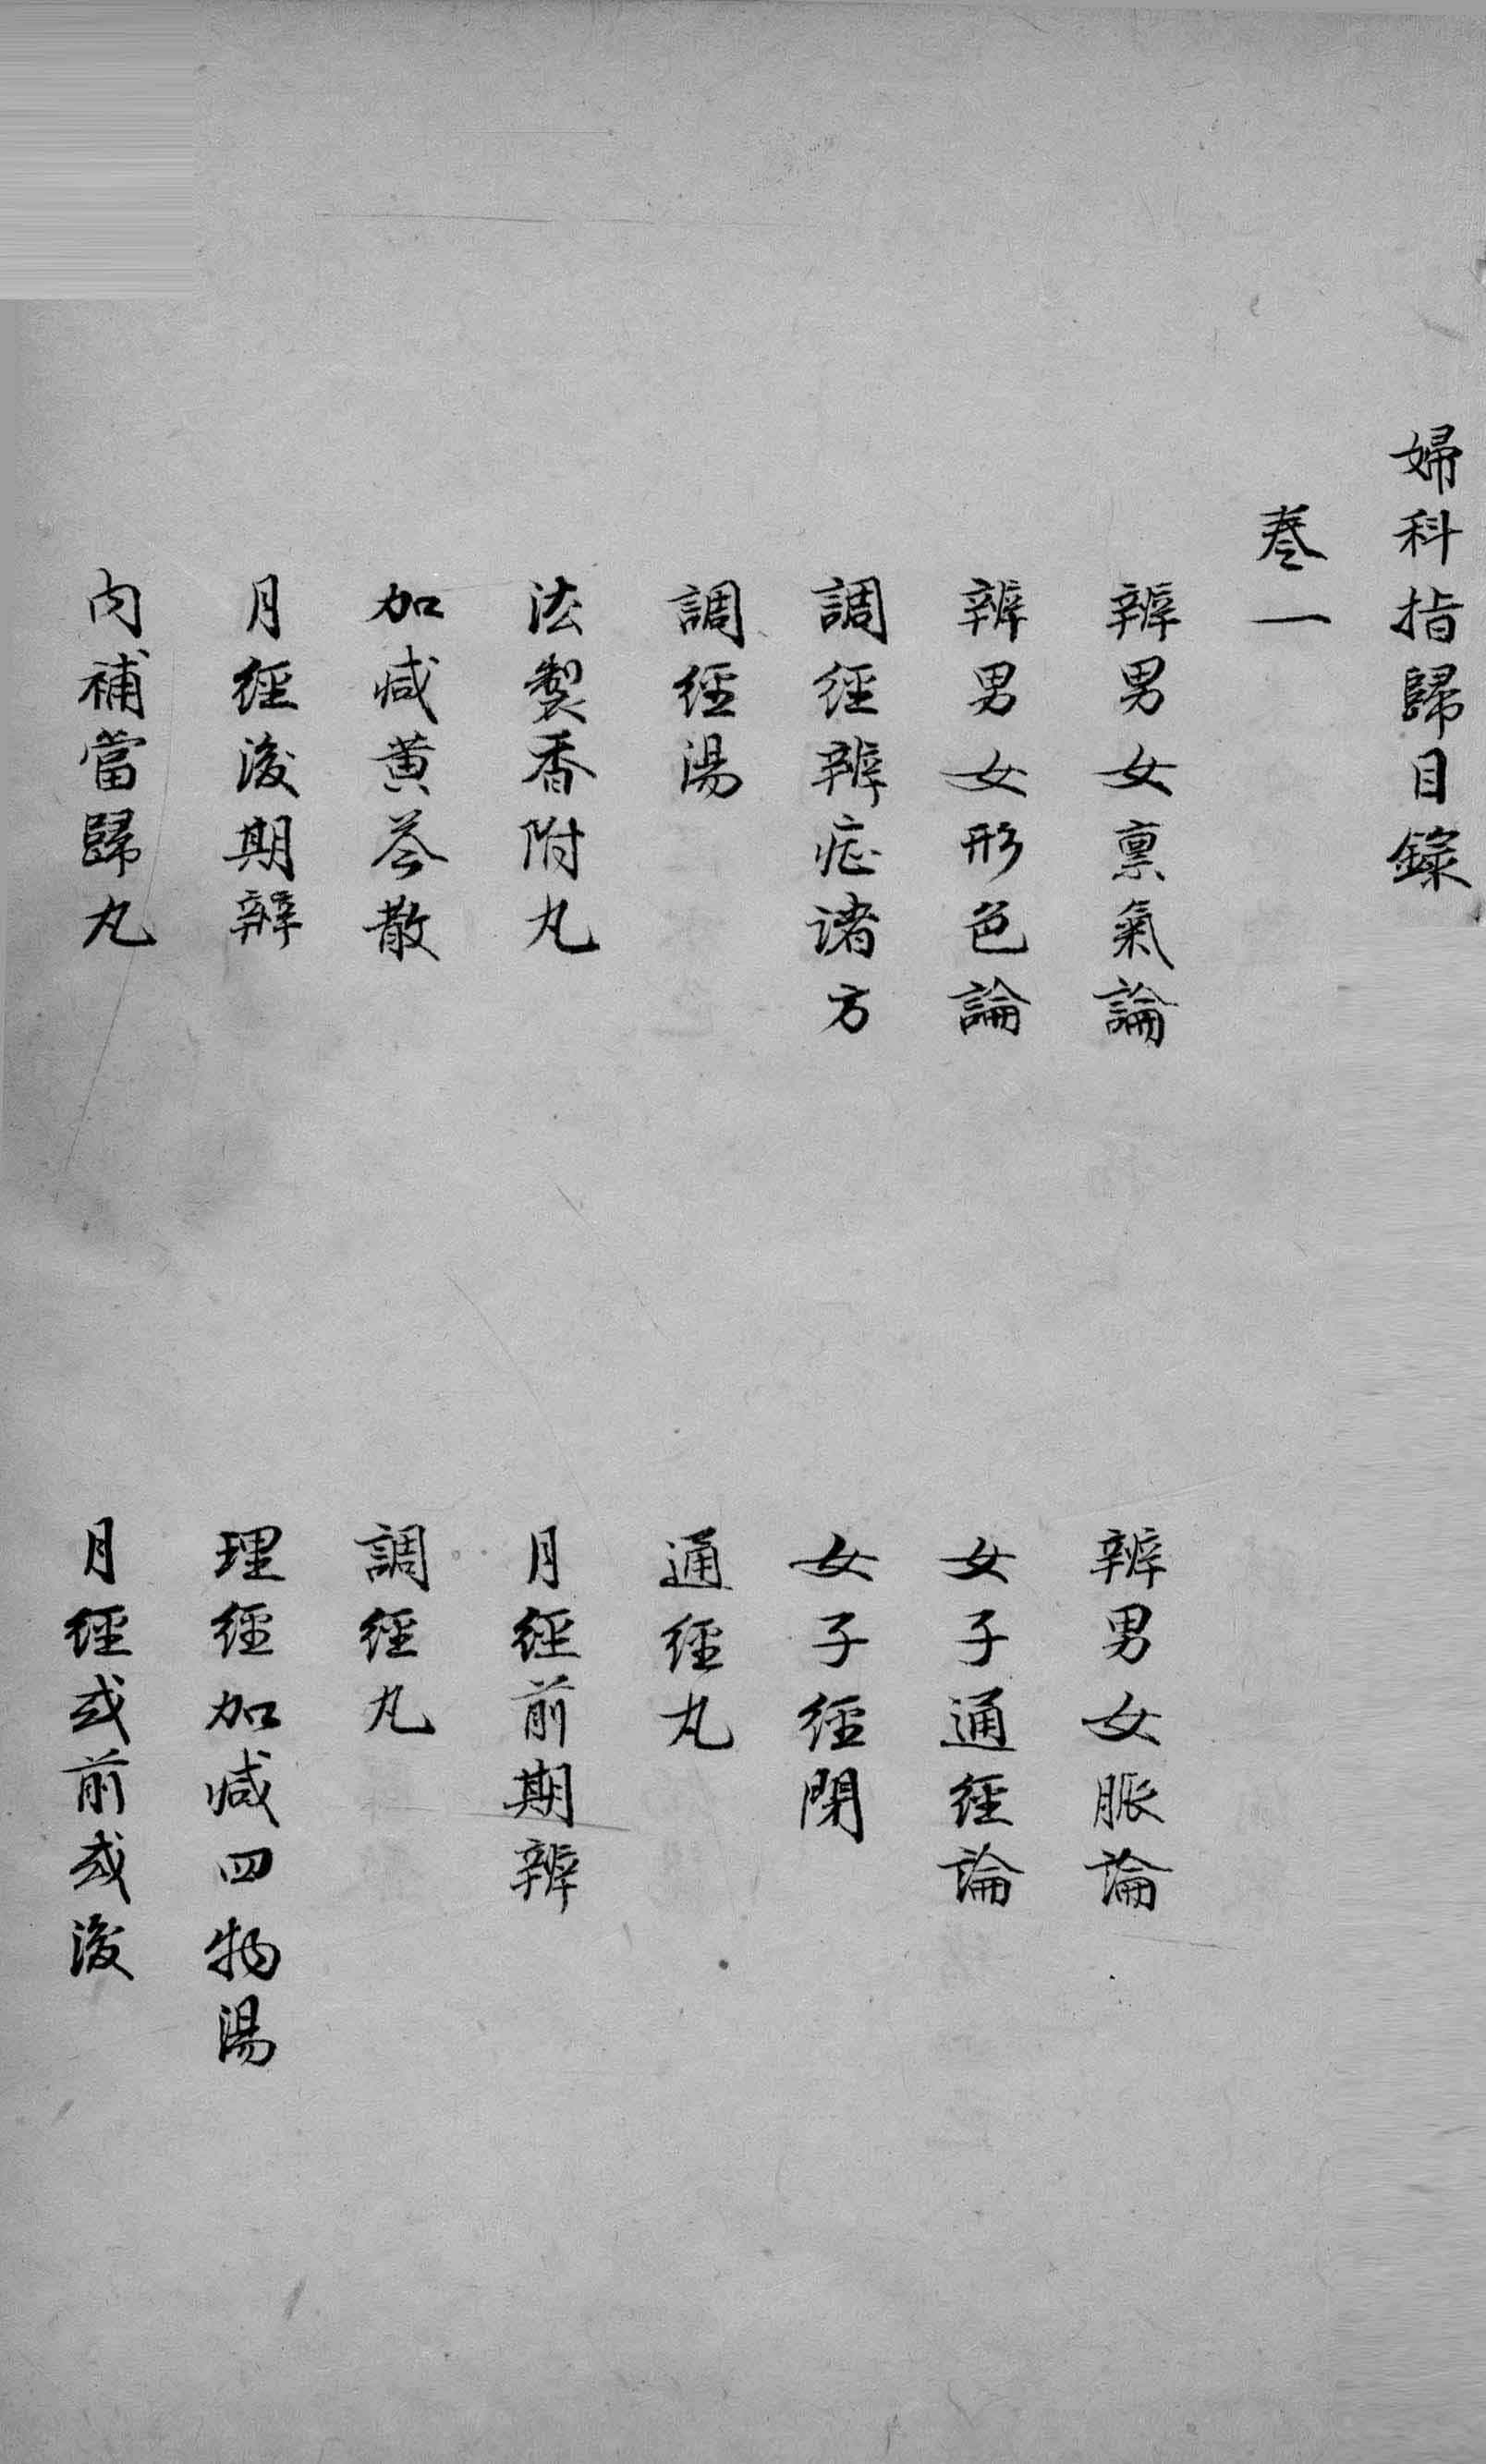 婦科指歸目錄
卷一
辨男女禀氣論
辨男女脈論
辨男女形色論
女子通經論
調經辨症諸方
女子經閉
調經湯
通經丸
法製香附丸
月經前期辨
加减黄芩散
調經丸
月經後期辨
理經加减四物湯
内補當歸丸
月經或前或後